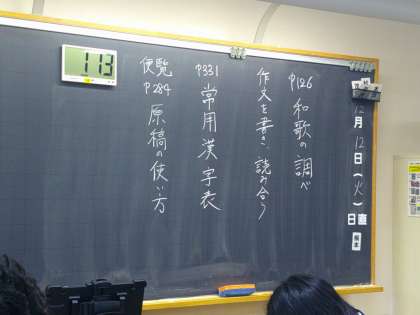 12月12日(火)
日直
p126 和歌の調べ
作文を書き、読み合う
p331 常用漢字表
便覧
p284 原稿の使い方
113